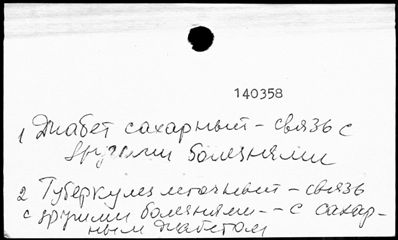 140358
1 Диабет сахарный - связь с
другими болезнями
2 Туберкулез легочный - связь
с другими болезнями - - с сахар-
ным диабетом